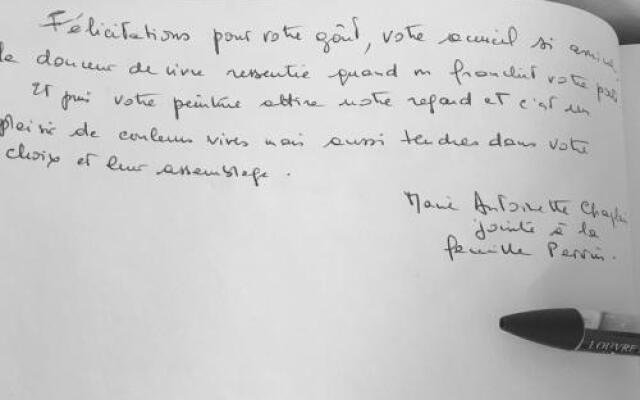 Félicitations pour votre goût, votre accueil si amical
la douceur de vivre ressentie quand on franchit votre
Et puis votre peinture attire notre regard et c'est un
plaisir de couleurs vives mais aussi tendres dans votre
choix et leur assemblage.
Marie Antoinette
jointe à la
famille Perrin.
LOUVRE